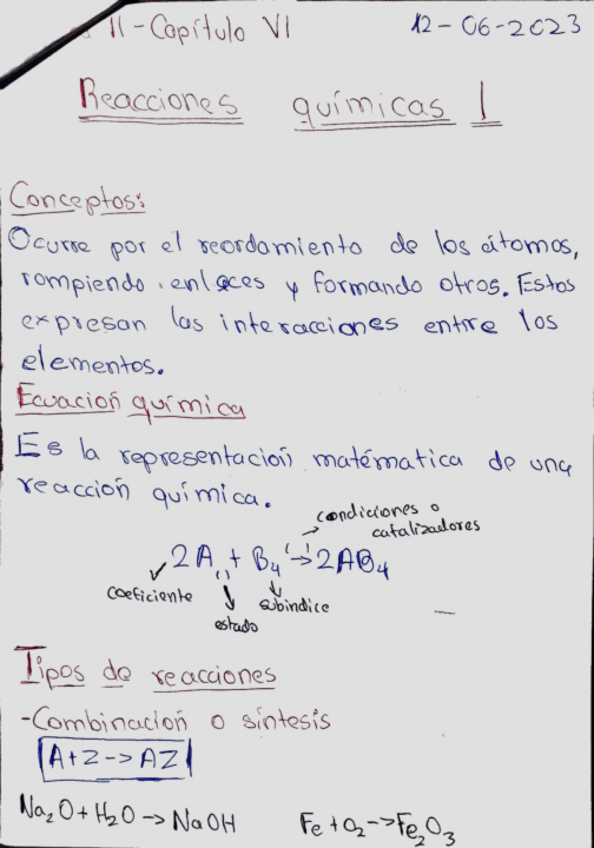 II-Capítulo VI 12-06-2023
Reacciones químicas I
Conceptos:
Ocurre por el reordamiento de los átomos,
rompiendo enlaces y formando otros. Estos
expresan las interacciones entre los
elementos.
Ecuación química
Es la representación matématica de una
reacción química.
condiciones o
catalizadores
2A() + B₄ (-)-> 2AB₄
coeficiente
subindice
estado
Tipos de reacciones
-Combinación o síntesis
A+Z->AZ
Na₂O+H₂O->NaOH Fe+O₂->Fe₂O₃